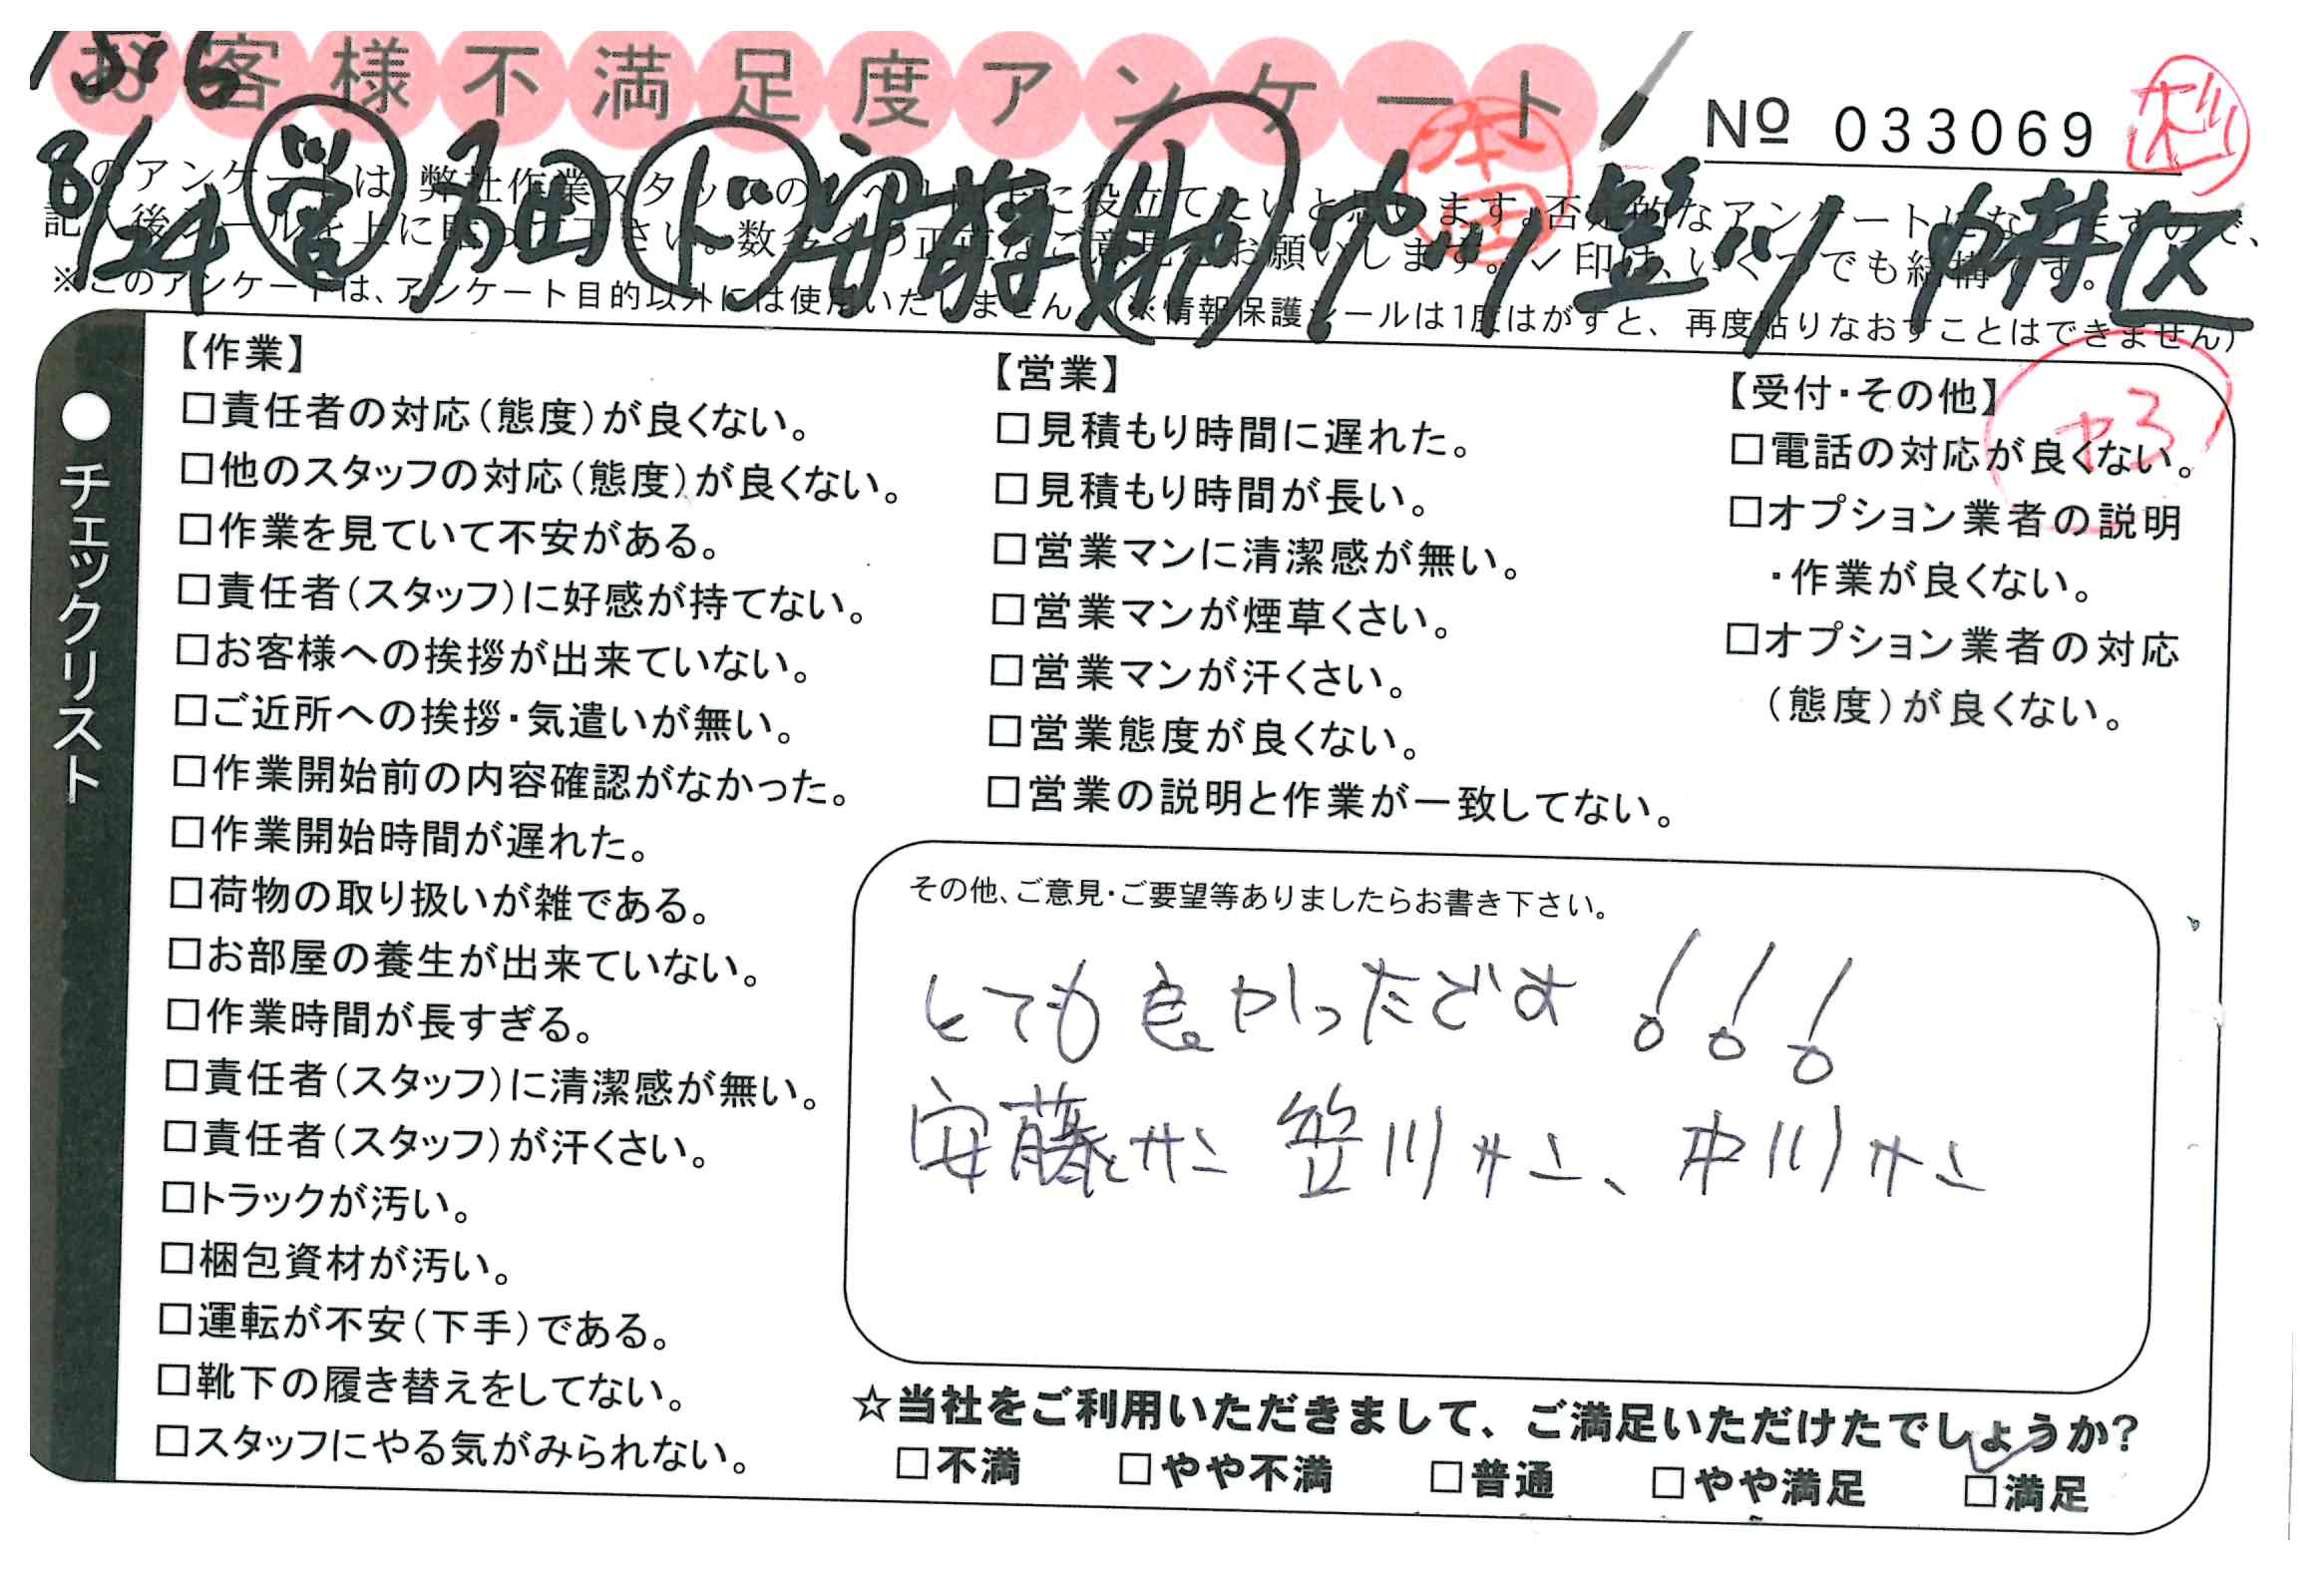 お客様不満足度アンケート
№ 033069
8/24 営 ド 安藤 助 中川 笠川
本田
※このアンケートは、アンケート目的以外には使用いたしません。(※情報保護シールは1度はがすと、再度貼りなおすことはできません)
+3
●チェックリスト
【作業】
□責任者の対応(態度)が良くない。
□他のスタッフの対応(態度)が良くない。
□作業を見ていて不安がある。
□責任者(スタッフ)に好感が持てない。
□お客様への挨拶が出来ていない。
□ご近所への挨拶・気遣いが無い。
□作業開始前の内容確認がなかった。
□作業開始時間が遅れた。
□荷物の取り扱いが雑である。
□お部屋の養生が出来ていない。
□作業時間が長すぎる。
□責任者(スタッフ)に清潔感が無い。
□責任者(スタッフ)が汗くさい。
□トラックが汚い。
□梱包資材が汚い。
□運転が不安(下手)である。
□靴下の履き替えをしてない。
□スタッフにやる気がみられない。
【営業】
□見積もり時間に遅れた。
□見積もり時間が長い。
□営業マンに清潔感が無い。
□営業マンが煙草くさい。
□営業マンが汗くさい。
□営業態度が良くない。
□営業の説明と作業が一致してない。
【受付・その他】
□電話の対応が良くない。
□オプション業者の説明
・作業が良くない。
□オプション業者の対応
(態度)が良くない。
その他、ご意見・ご要望等ありましたらお書き下さい。
とても良かったです!!!
安藤サン 笠川サン、中川サン
☆当社をご利用いただきまして、ご満足いただけたでしょうか?
□不満 □やや不満 □普通 □やや満足 □満足